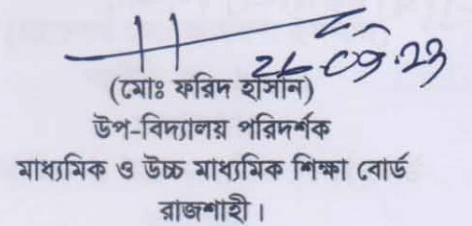 26.09.23
(মোঃ ফরিদ হাসান)
উপ-বিদ্যালয় পরিদর্শক
মাধ্যমিক ও উচ্চ মাধ্যমিক শিক্ষা বোর্ড
রাজশাহী।